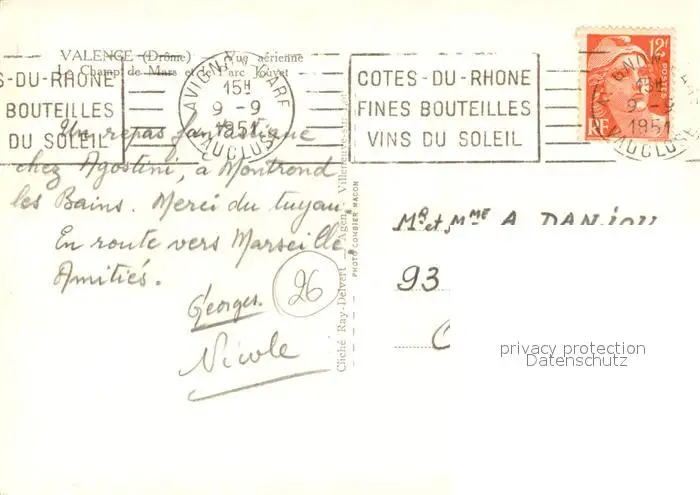 VALENCE (Drôme) — Vue aérienne
Le Champ de Mars et le Parc Jouvet
S-DU-RHONE
BOUTEILLES
DU SOLEIL
AVIGNON GARE
15H
9-9
1951
VAUCLUSE
COTES-DU-RHONE
FINES BOUTEILLES
VINS DU SOLEIL
12F
POSTES
RF
AVIGNON GARE
15H
9-9
1951
VAUCLUSE
Un repas fantastique
chez Agostini, à Montrond
les Bains. Merci du tuyau.
En route vers Marseille.
Amitiés.
Georges.
Nicole
26
Cliché Ray-Delvert — Agen, Villeneuve-sur-Lot
PHOTO COMBIER MACON
Mr et Mme A. DANJOU
93
privacy protection
Datenschutz